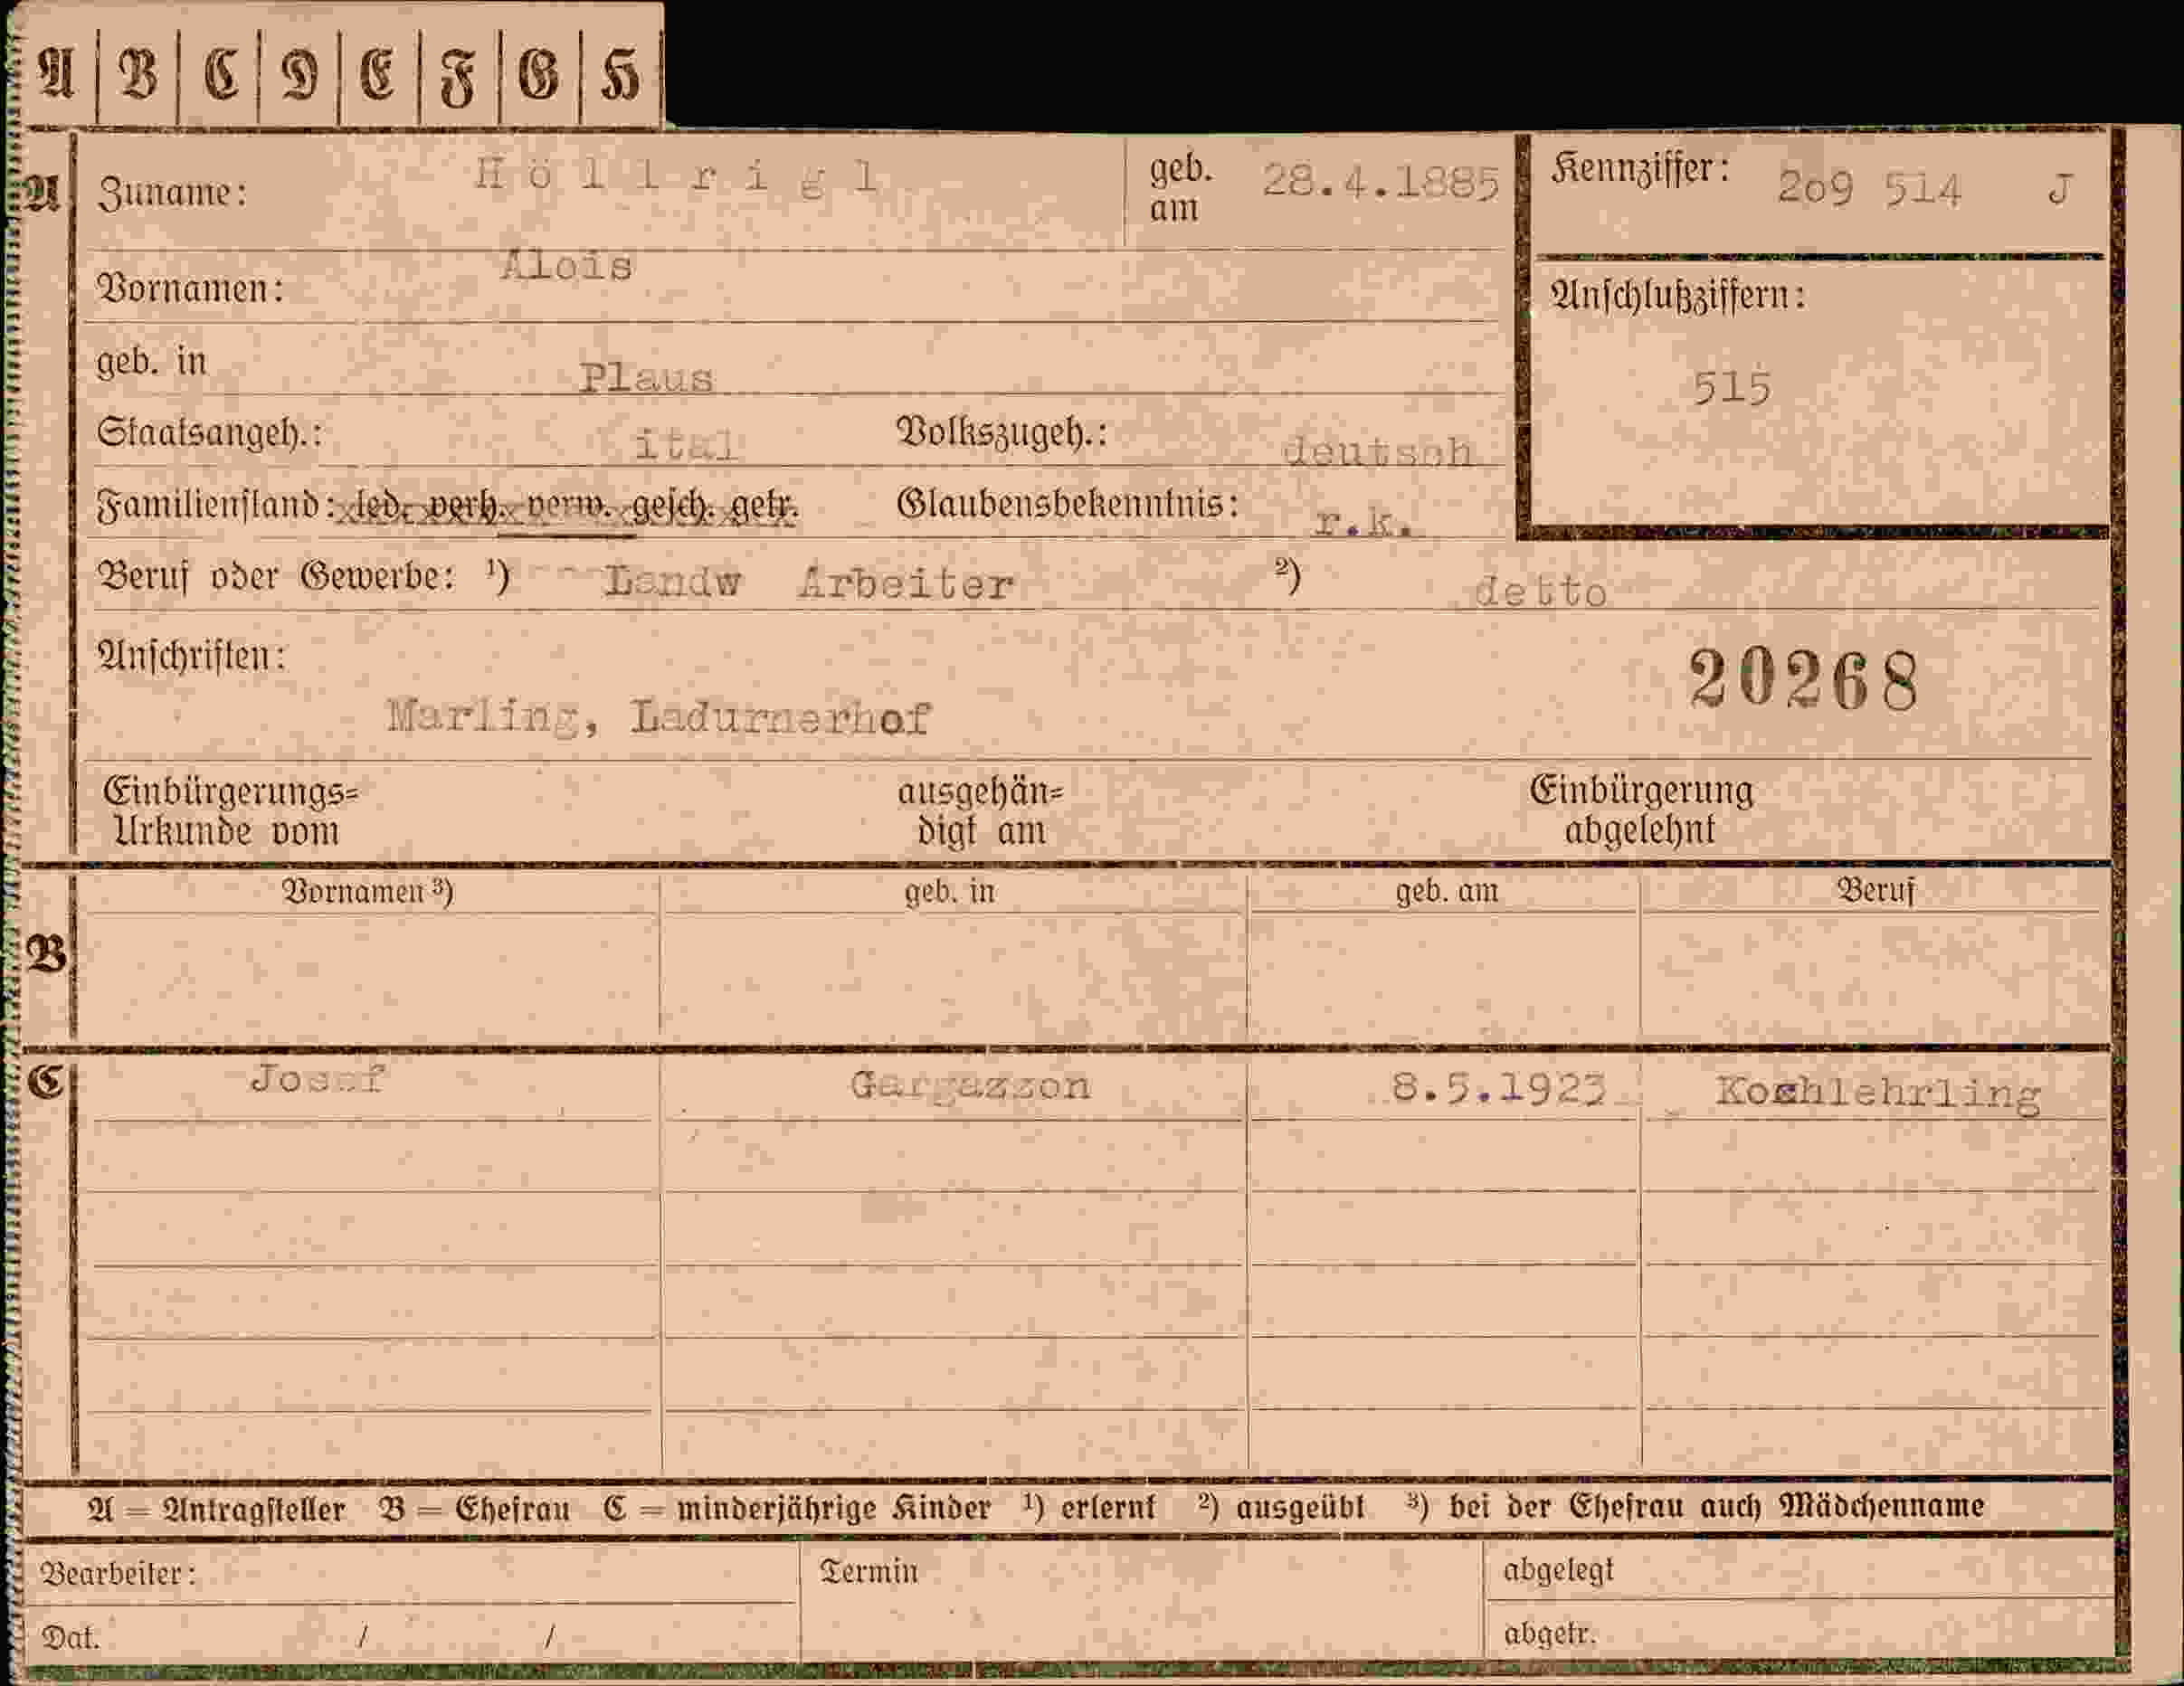 A B C D E F G H
A Zuname: Höllrigl geb. am 28.4.1885 Kennziffer: 2o9 514 J
Vornamen: Alois Anschlußziffern:
geb. in Plaus 515
Staatsangeh.: ital Volkszugeh.: deutsch
Familienstand: led. verh. verw. gesch. getr. Glaubensbekenntnis: r.k.
Beruf oder Gewerbe: ¹) Landw Arbeiter ²) detto
Anschriften: 20268
Marling, Ladurnerhof
Einbürgerungs= ausgehän= Einbürgerung
Urkunde vom digt am abgelehnt
Vornamen ³) geb. in geb. am Beruf
B
C Josef Gargazzon 8.5.1923 Kochlehrling
A = Antragsteller B = Ehefrau C = minderjährige Kinder ¹) erlernt ²) ausgeübt ³) bei der Ehefrau auch Mädchenname
Bearbeiter: Termin abgelegt
Dat. / / abgetr.